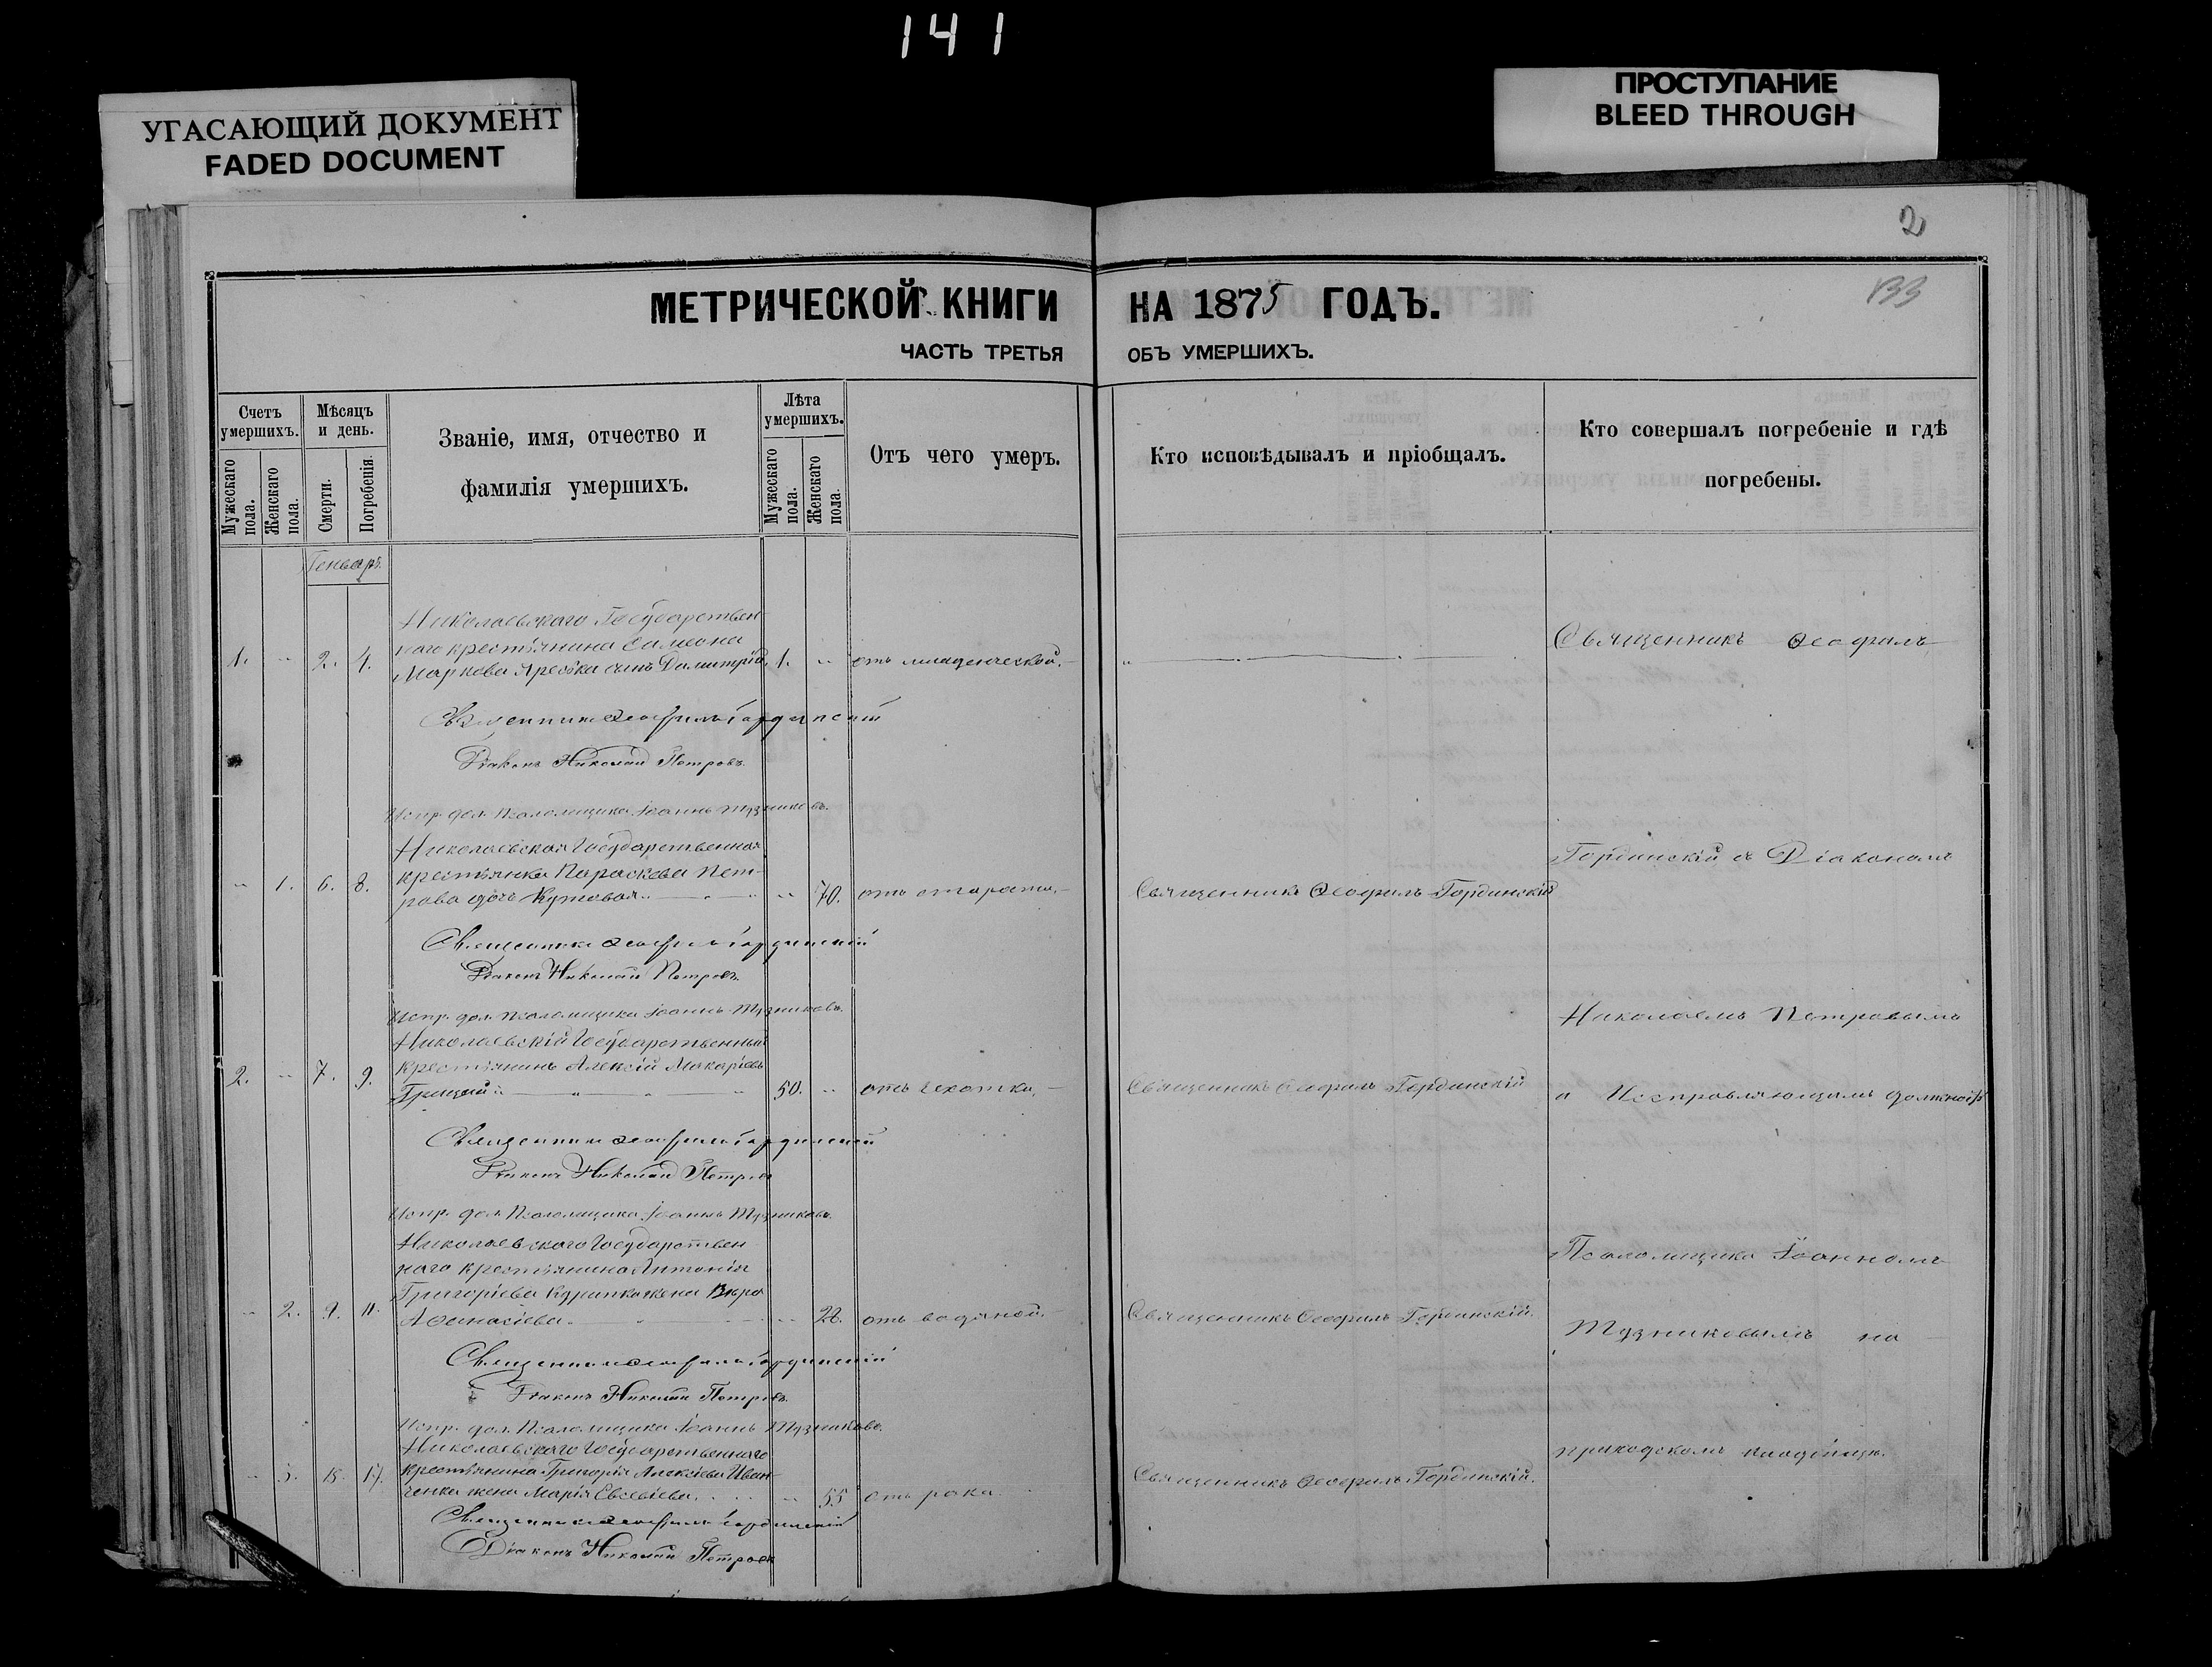 141
УГАСАЮЩИЙ ДОКУМЕНТ
FADED DOCUMENT
ПРОСТУПАНИЕ
BLEED THROUGH
2
133
МЕТРИЧЕСКОЙ КНИГИ НА 1875 ГОДЪ.
ЧАСТЬ ТРЕТЬЯ ОБЪ УМЕРШИХЪ.
Счетъ умершихъ.
Мужескаго пола.
Женскаго пола.
Мѣсяцъ и день.
Смерти.
Погребенія.
Званіе, имя, отчество и
фамилія умершихъ.
Лѣта умершихъ.
Мужескаго пола.
Женскаго пола.
Отъ чего умеръ.
Кто исповѣдывалъ и пріобщалъ.
Кто совершалъ погребеніе и гдѣ
погребены.
Генварь.
Николаевского Государствен-
наго крестьянина Симеона
1. " 2. 4. Маркова сынъ Димитрій, 1. " отъ младенческой.
Священникъ Ѳеофилъ
Священникъ Ѳеофилъ Гординскій
Діаконъ Николай Петровъ.
Испр. дол. Псаломщика Іоаннъ Тузниковъ.
Николаевская Государственная
крестьянка Параскева Пет-
" 1. 6. 8. рова дочь Кутовая. " 70. отъ старости, Священникъ Ѳеофилъ Гординскій
Гординскій съ Діакономъ
Священникъ Ѳеофилъ Гординскій
Діаконъ Николай Петровъ.
Испр. дол. Псаломщика Іоаннъ Тузниковъ.
Николаемъ Петровымъ
Николаевскій Государственный
2. " 7. 9. крестьянинъ Алексій Макаріевъ
Грицай 50. " отъ чахотки, Священникъ Ѳеофилъ Гординскій
и Исправляющимъ должность
Священникъ Ѳеофилъ Гординскій
Діаконъ Николай Петровъ
Испр. дол. Псаломщика Іоаннъ Тузниковъ.
Николаевского Государствен
наго крестьянина Антонія
Псаломщика Іоанномъ
Григоріева жена Вѣра
" 2. 9. 11. Аѳанасіева " 22. отъ водяной. Священникъ Ѳеофилъ Гординскій.
Тузниковымъ на
Священникъ Ѳеофилъ Гординскій
Діаконъ Николай Петровъ.
Испр. дол. Псаломщика Іоаннъ Тузниковъ.
Николаевского Государственнаго
приходскомъ кладбищѣ.
" 3. 15. 17. крестьянина Григорія Алексіева Иван-
ченка жена Марія Евсевіева. " 55 отъ рака Священникъ Ѳеофилъ Гординскій.
Священникъ Ѳеофилъ Гординскій
Діаконъ Николай Петровъ